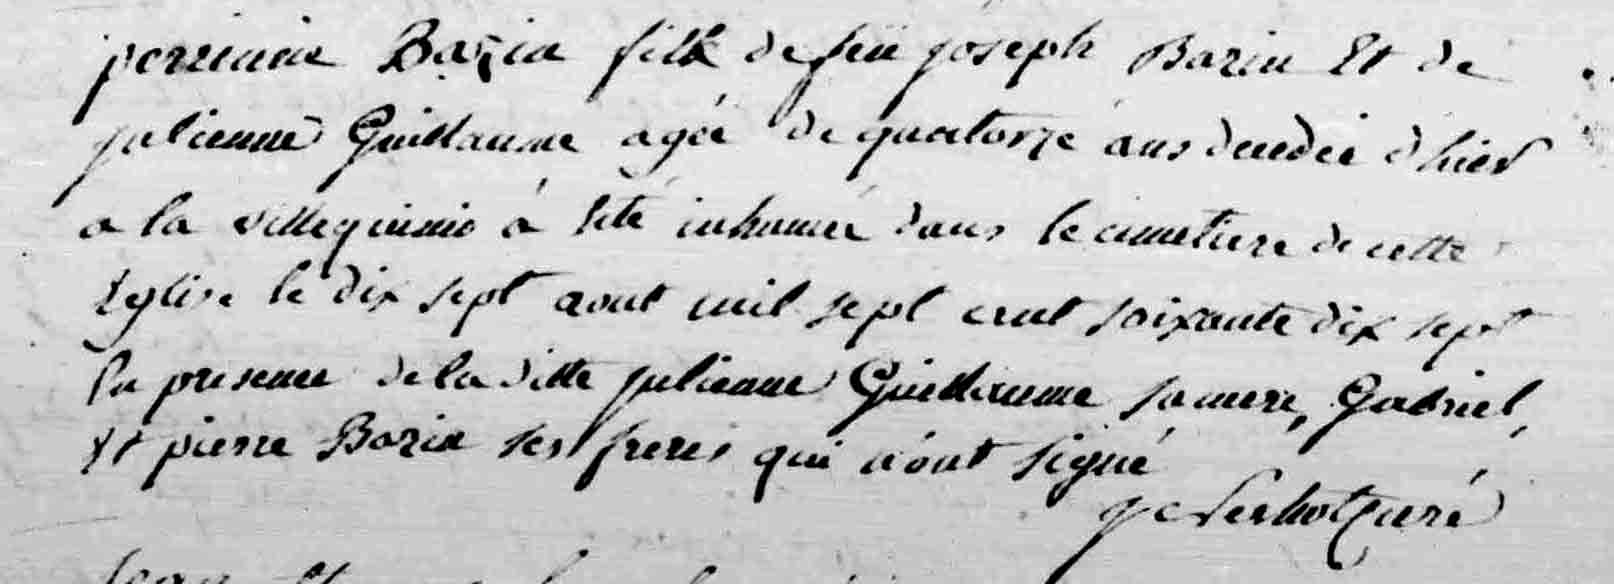 perrinne Bazin fille de feu joseph Bazin Et de
julienne Guillaume agée de quatorze ans decedée d'hier
a la villeguinio à Eté inhumée dans le cimetiere de cette
Eglise le dix sept aout mil sept cent soixante dix sept
En presence de la ditte julienne Guillaume sa mere, Gabriel,
Et pierre Bazin ses freres qui n'ont signé
curé